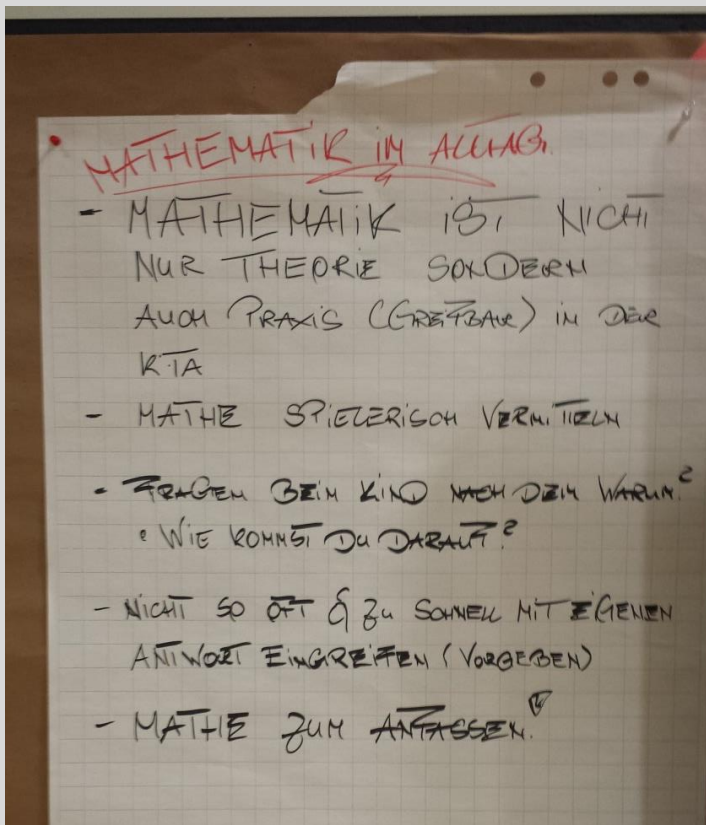 MATHEMATIK IM ALLTAG.
- MATHEMATIK IST NICHT
NUR THEORIE SONDERN
AUCH PRAXIS (GREIFBAR) IN DER
KITA
- MATHE SPIELERISCH VERMITTELN
- FRAGEN BEIM KIND NACH DEM WARUM?
• WIE KOMMST DU DARAUF?
- NICHT SO OFT & ZU SCHNELL MIT EIGENEN
ANTWORT EINGREIFEN (VORGEBEN)
- MATHE ZUM ANFASSEN!